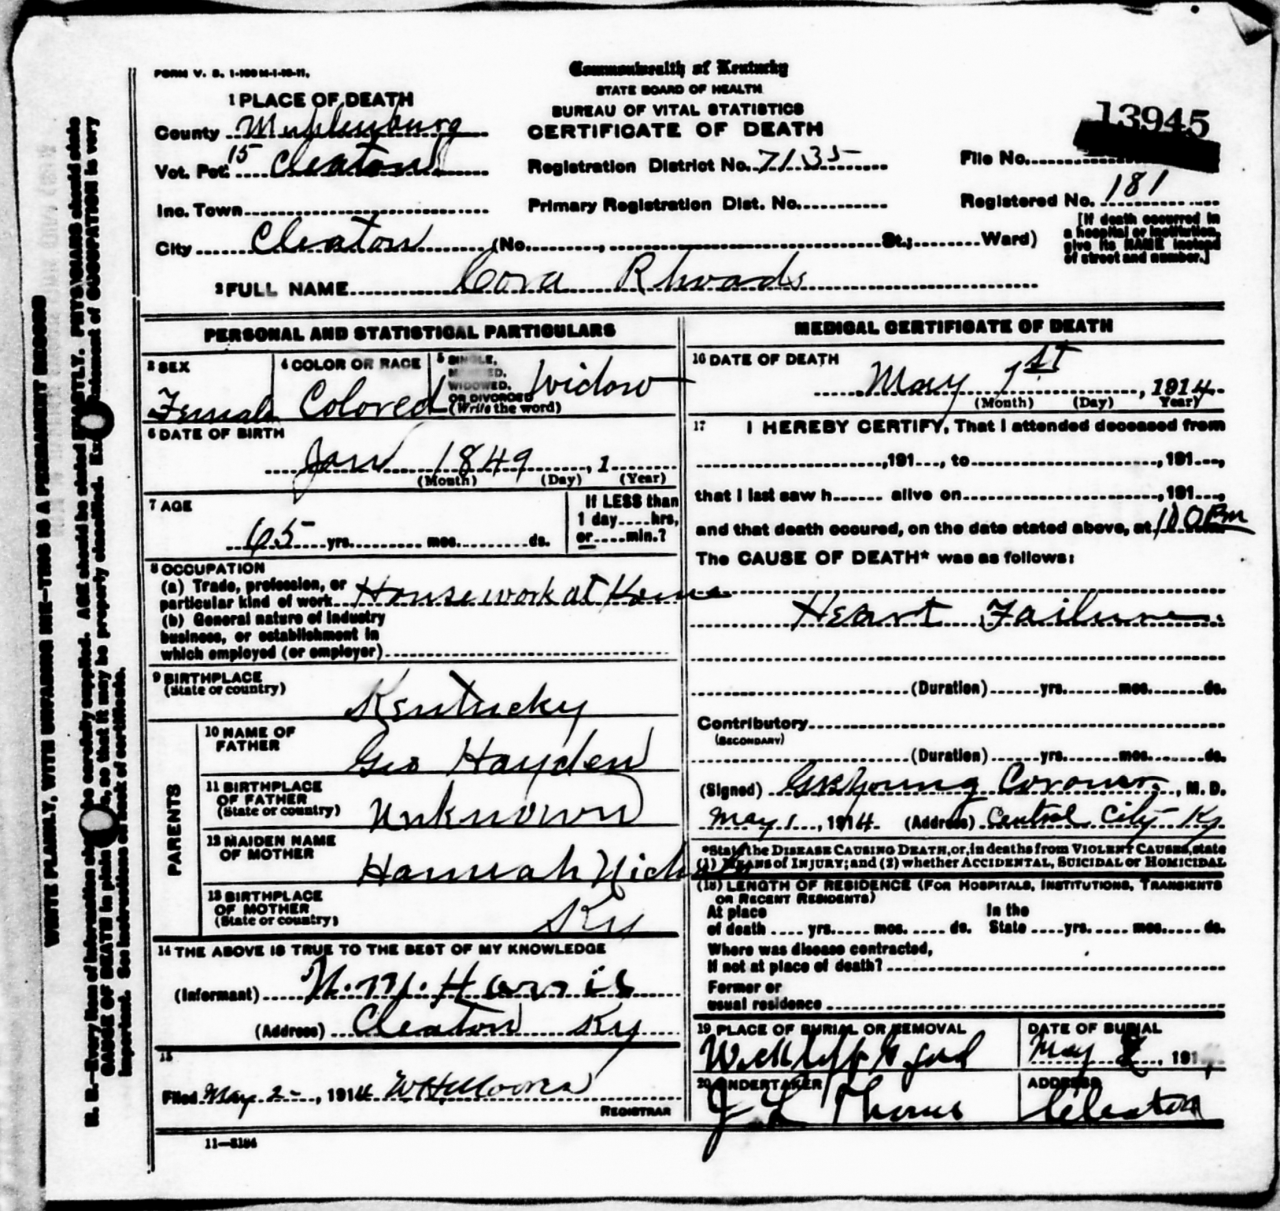 FORM V. S. 1-100 M-1-10-11.
Commonwealth of Kentucky
STATE BOARD OF HEALTH
BUREAU OF VITAL STATISTICS
CERTIFICATE OF DEATH
1 PLACE OF DEATH
County Muhlenburg
Vot. Pct. 15 Cleaton
Inc. Town
City Cleaton (No. , St.; Ward)
Registration District No. 7135
Primary Registration Dist. No.
13945
File No.
Registered No. 181
[If death occurred in
a hospital or institution,
give its NAME instead
of street and number.]
2 FULL NAME Cora Rhoads
PERSONAL AND STATISTICAL PARTICULARS
3 SEX
Female
4 COLOR OR RACE
Colored
5 SINGLE,
MARRIED,
WIDOWED,
OR DIVORCED
(Write the word)
Widow
6 DATE OF BIRTH
Jan 1849 , 1
(Month) (Day) (Year)
7 AGE
65 yrs. mos. ds.
If LESS than
1 day hrs,
or min.?
8 OCCUPATION
(a) Trade, profession, or
particular kind of work Housework at Home
(b) General nature of industry
business, or establishment in
which employed (or employer)
9 BIRTHPLACE
(State or country)
Kentucky
PARENTS
10 NAME OF
FATHER
Geo Hayden
11 BIRTHPLACE
OF FATHER
(State or country)
Unknown
12 MAIDEN NAME
OF MOTHER
Hannah
13 BIRTHPLACE
OF MOTHER
(State or country)
Ky
14 THE ABOVE IS TRUE TO THE BEST OF MY KNOWLEDGE
(Informant) N. M. Harris
(Address) Cleaton Ky
15
Filed May 2 , 1914 W H Moores
REGISTRAR
11—3184
MEDICAL CERTIFICATE OF DEATH
16 DATE OF DEATH
May 1st , 1914
(Month) (Day) Year)
17 I HEREBY CERTIFY, That I attended deceased from
,191 , to ,191 ,
that I last saw h alive on ,191 ,
and that death occured, on the date stated above, at 10 Pm
The CAUSE OF DEATH* was as follows:
Heart Failure
(Duration) yrs. mos. ds.
Contributory
(SECONDARY)
(Duration) yrs. mos. ds.
(Signed) Young Coroner, M. D.
May 1 , 1914 (Address) Central City Ky
*State the DISEASE CAUSING DEATH, or, in deaths from VIOLENT CAUSES, state
(1) MEANS of INJURY; and (2) whether ACCIDENTAL, SUICIDAL or HOMICIDAL
(18) LENGTH OF RESIDENCE (FOR HOSPITALS, INSTITUTIONS, TRANSIENTS
OR RECENT RESIDENTS)
At place
of death yrs. mos. ds.
In the
State yrs. mos. ds.
Where was disease contracted,
If not at place of death?
Former or
usual residence
19 PLACE OF BURIAL OR REMOVAL
Wickliff G yard
DATE OF BURIAL
May 2 , 191
20 UNDERTAKER
J L
ADDRESS
Cleaton
WRITE PLAINLY, WITH UNFADING INK—THIS IS A PERMANENT RECORD
N. B.—Every item of information should be carefully supplied. AGE should be stated EXACTLY. PHYSICIANS should state
CAUSE OF DEATH in plain terms, so that it may be properly classified. Exact statement of OCCUPATION is very
important. See instructions on back of certificate.